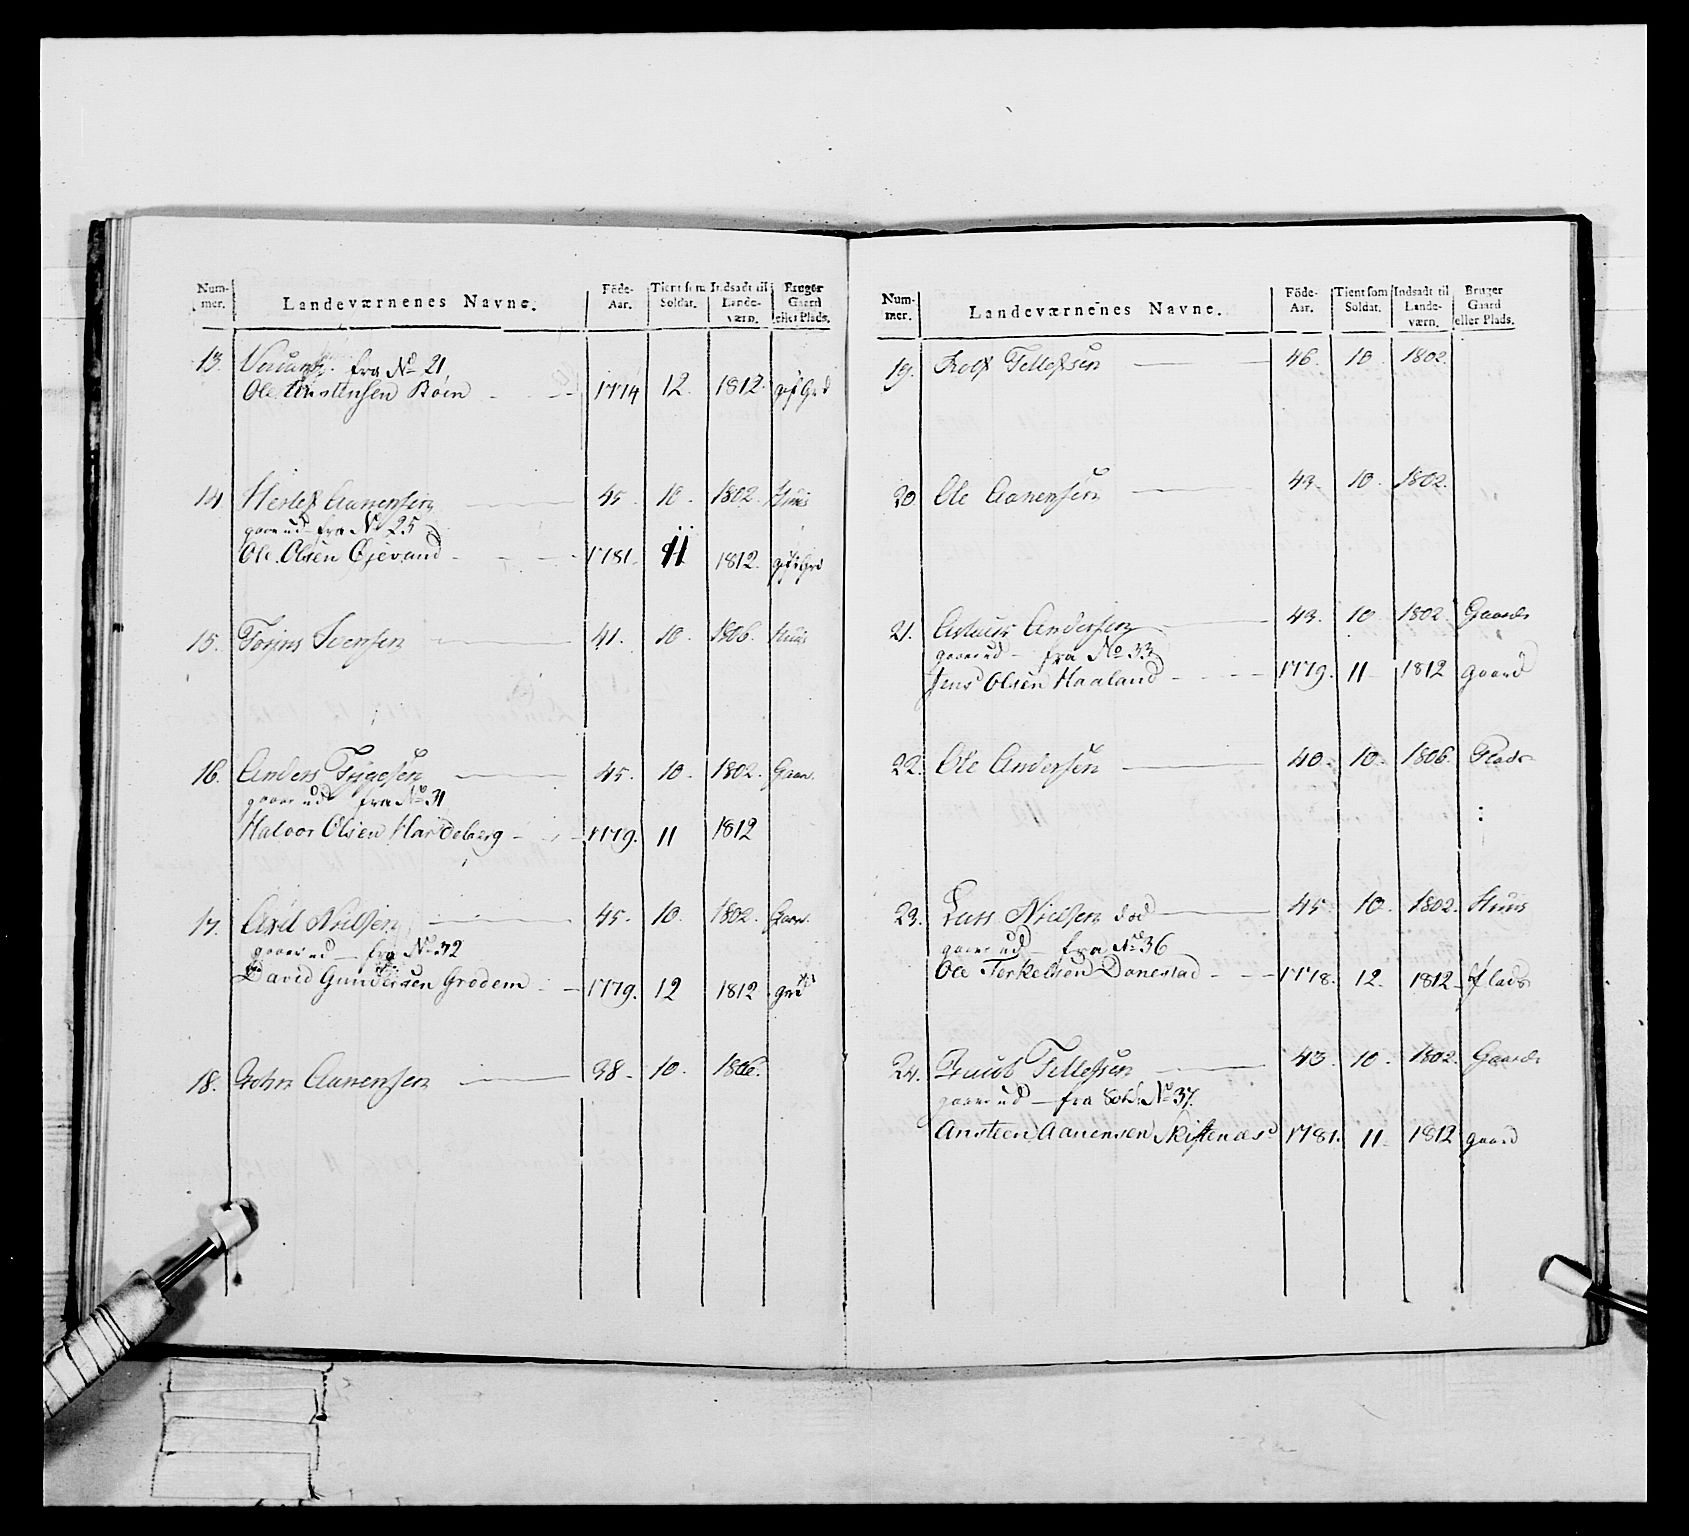 Num-
mer.
Landeværnenes Navne.
Föde-
Aar.
Tient som
Soldat.
Indsadt til
Lande-
værn.
Bruger
Gaard
eller Plads.
13. fra No 21
Ole Anstensen Röin 1774 12. 1812.
14 Herlef Aanensen 45. 10. 1802. Huus
gaaer ud fra No 25
Ole Olsen Øjevand 1781. 11 1812.
15. Svensen 41. 10. 1806. Huus
16. Anders Tygesen 45. 10. 1802.
gaaer ud fra No 31
Halvor Olsen Hardeberg 1779. 11 1812
17. Axel Nielsen 45. 10. 1802.
gaaer ud fra No 32
David Gundersen Grødem 1779. 12 1812
18. John Aanensen 38. 10. 1806.
Num-
mer.
Landeværnenes Navne.
Föde-
Aar.
Tient som
Soldat.
Indsadt til
Lande-
værn.
Bruger
Gaard
eller Plads.
19. Tellefsen 46. 10. 1802.
20 Ole Aanensen 43. 10. 1802.
21. Andersen 43. 10 1802. Gaard
gaaer ud fra No 33
Jens Olsen Haaland 1779. 11 1812 gaard
22. Ole Andersen 40. 10. 1806. Plads
23. Lars Nielsen död 45 10. 1802. Huus
gaaer ud fra No 36
Ole Terkelsen Dønestad 1778. 12. 1812 Plads
24. Tellefsen 43. 10. 1802. Gaard
gaaer ud fra Sold. No 37.
Ansteen Aanensen 1781. 11 1812 gaard